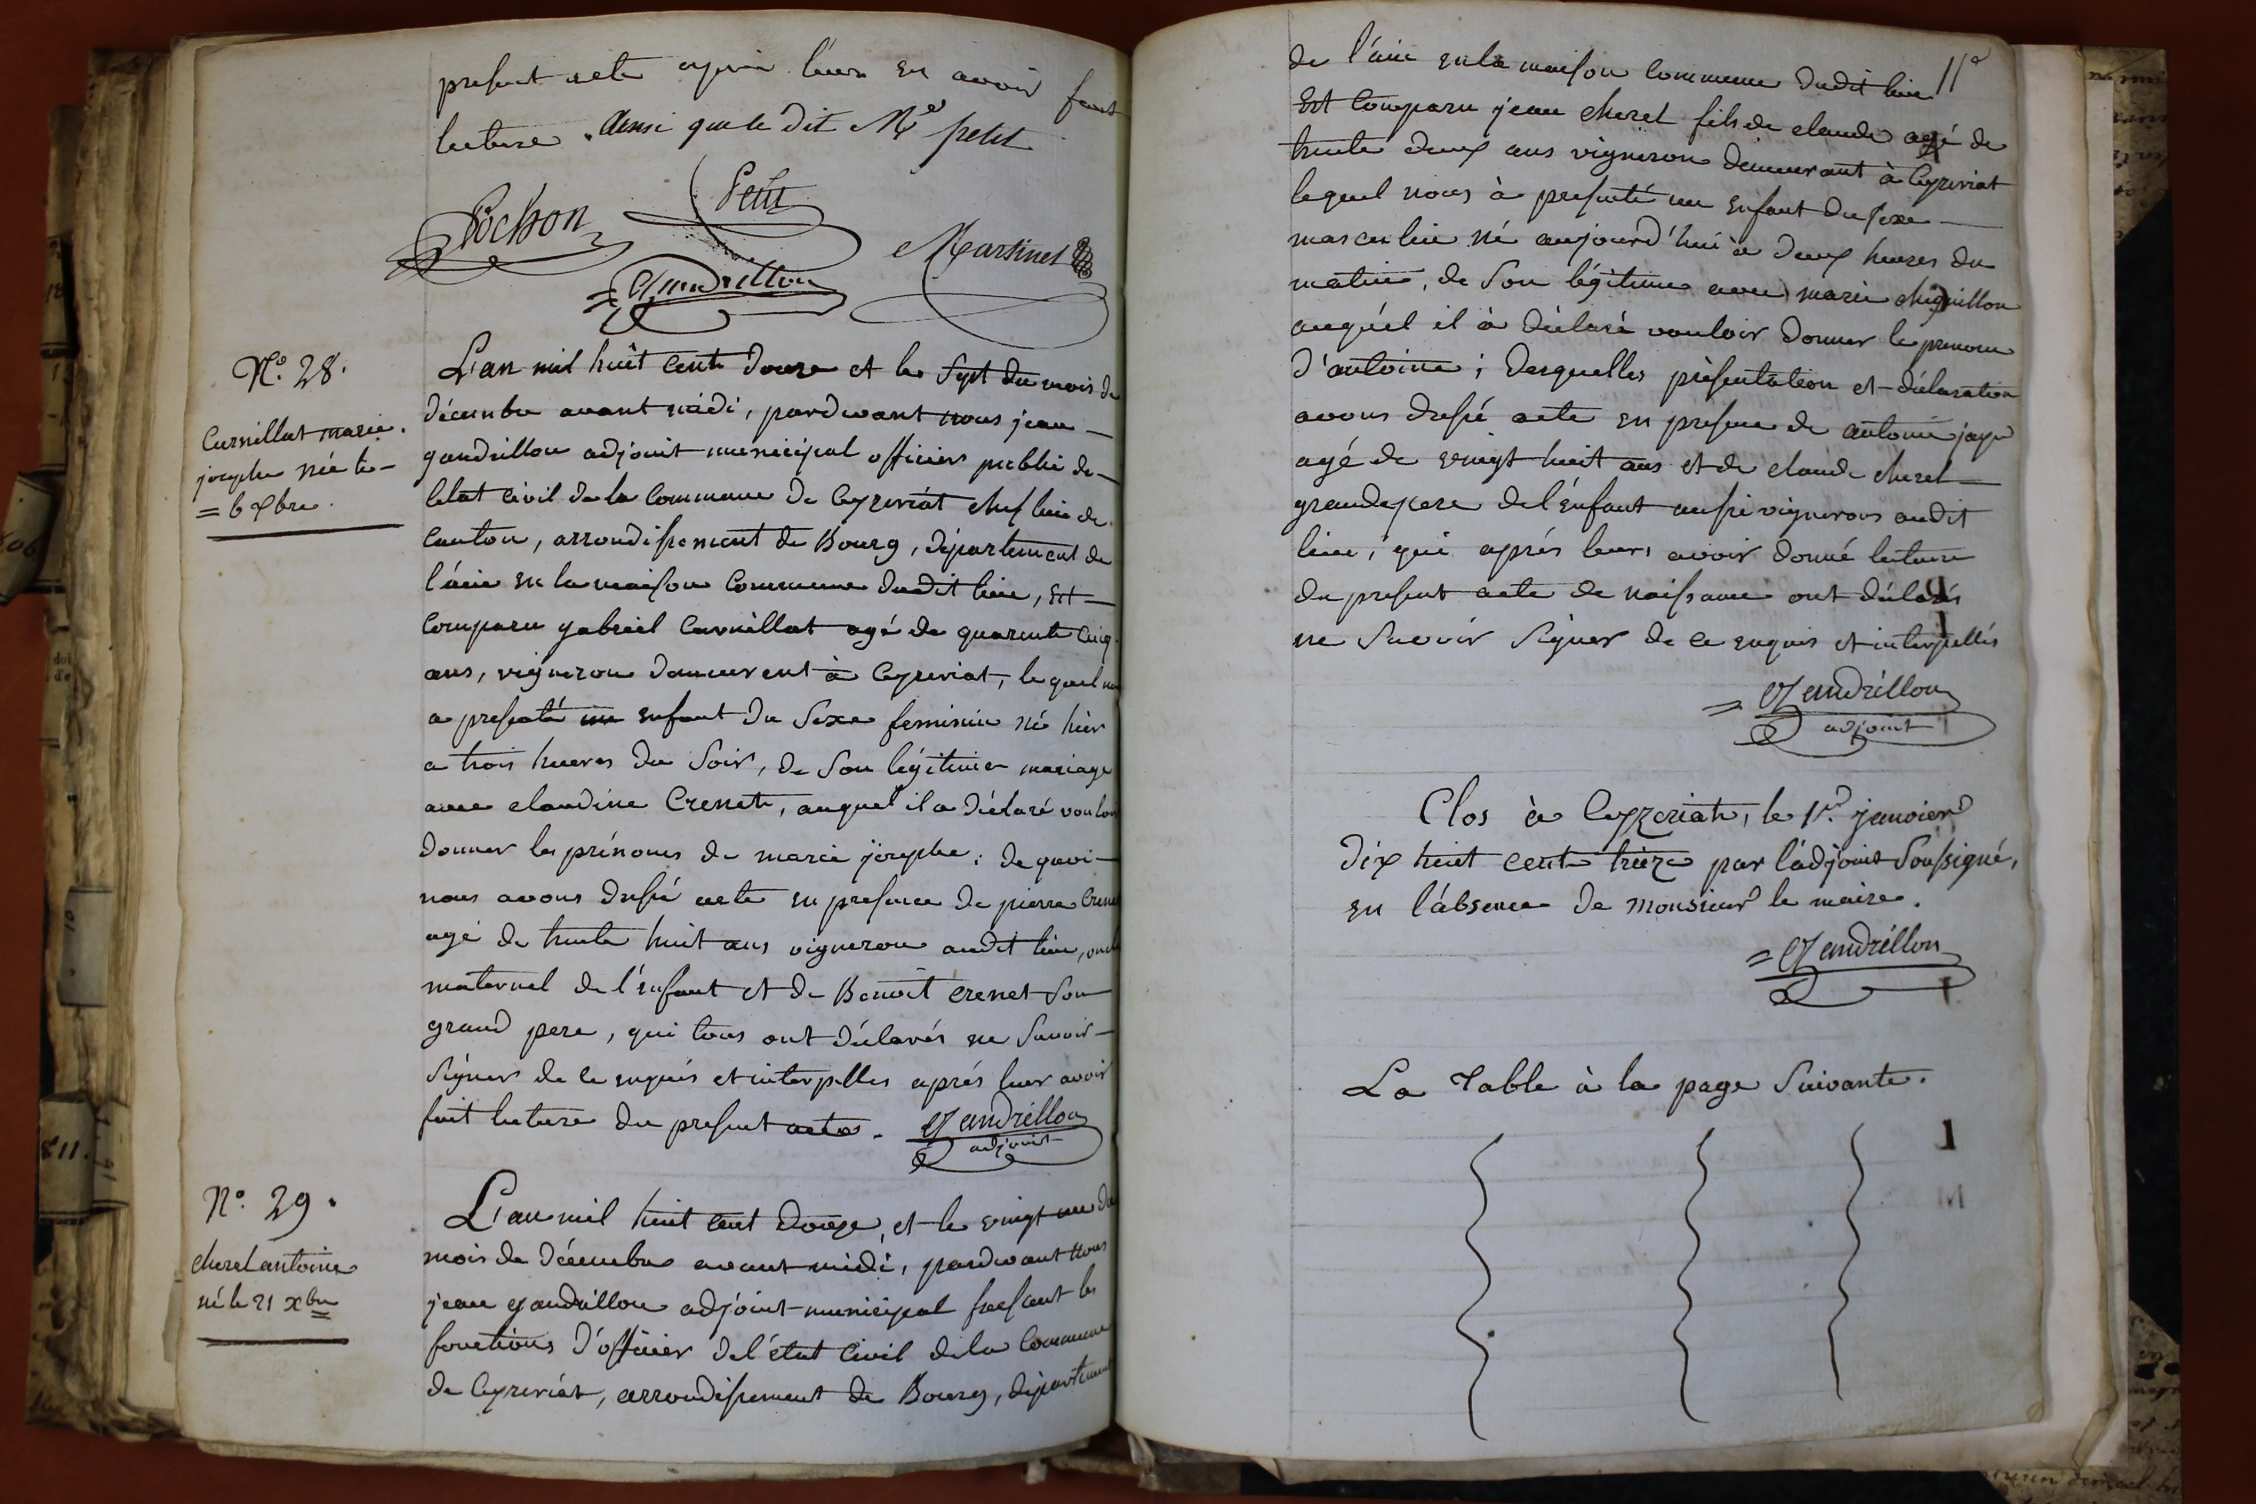 present acte après leurs en avoir fait
lecture. Ainsi que le dit Mr petit
Pochon
Petit
Martinet
Gandrillon
No. 28.
Curnillat marie
josephe née le
= 6 xbre.
L'an mil huit cent douze et le sept du mois de
décembre avant midi, pardevant nous jean
gandrillon adjoint municipal officier public de
létat civil de la Commune de Ceyzeriat chef lieu de
Canton, arrondissement de Bourg, département de
l'ain en la maison Commune dudit lieu, est
Comparu gabriel Curnillat agé de quarante Cinq
ans, vigneron demeurent à Ceyzeriat, lequel nous
a presenté un enfant du Sexe feminin né hier
a trois heures du Soir, de Son légitime mariage
avec claudine Crenet, auquel il a déclaré vouloir
donner les prénoms de marie josephe; de quoi
nous avons dressé acte en presence de pierre Crenet
agé de trente huit ans vigneron audit lieu, oncle
maternel de l'enfant et de Benoit Crenet Son
grand pere, qui tous ont déclarés ne Savoir
Signer de ce enquis et interpellés après leur avoir
fait lecture du present acte. Gandrillon
adjoint
No. 29.
cherel antoine
né le 21 xbre
L'an mil huit cent douze, et le vingt un du
mois de décembre avant midi, pardevant nous
jean gandrillon adjoint municipal faisant les
fonctions d'officier del'état Civil dela Commune
de Ceyzeriat, arrondissement de Bourg, département
11e
de l'ain en la maison Commune dudit lieu
Est Comparu jean cherel fils de claude agé de
trente deux ans vigneron demeurant à Ceyzeriat
lequel nous à presenté un enfant du Sexe
masculin né aujourd'hui à deux heures du
matin, de Son légitime avec marie chiguillon
auquel il à déclaré vouloir donner le prenom
d'antoine; desquelles présentation et déclaration
avons dressé acte en presence de antoine jayr
agé de vingt huit ans et de claude cherel
grandpere del'enfant aussi vignerons audit
lieu, qui après leurs avoir donné lecture
du present acte de naissance ont déclarés
ne Savoir Signer de ce enquis et interpellés
Gandrillon
adjoint
Clos à Ceyzeriat, le 1er. janvier
dix huit cent treize par l'adjoint Soussigné,
en l'absence de Monsieur le maire.
Gandrillon
La Table à la page Suivante.
811.